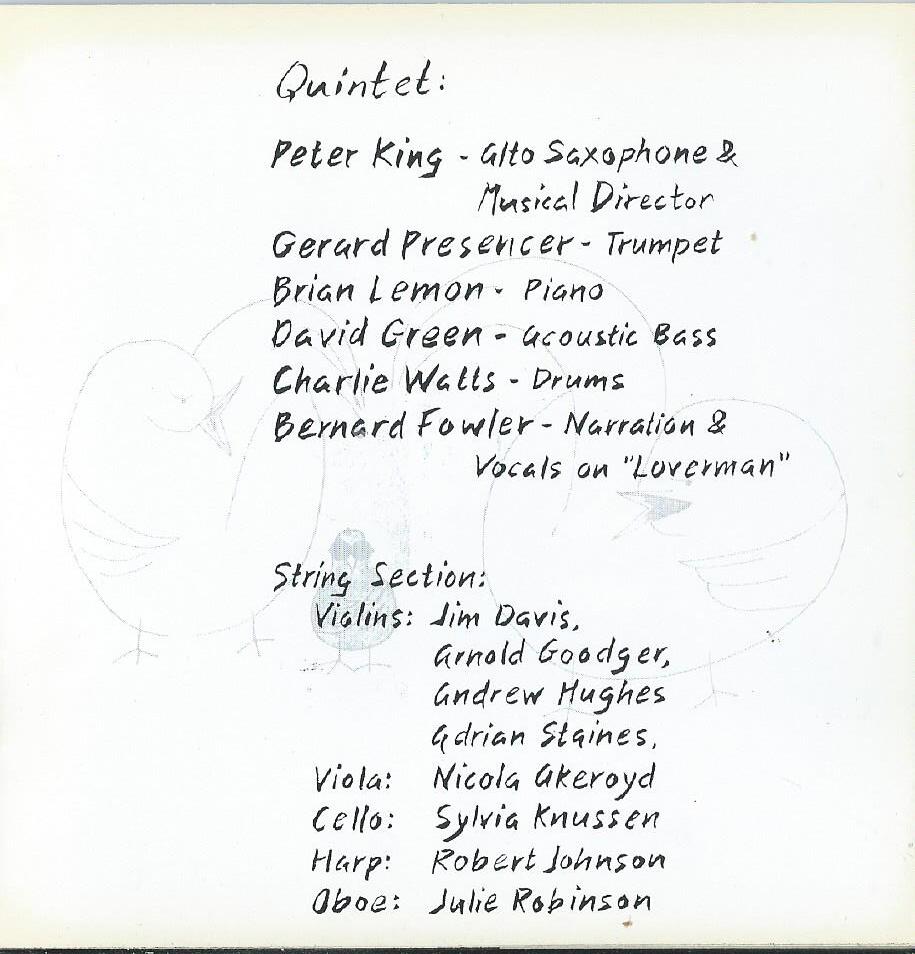 Quintet:
Peter King - Alto Saxophone &
Musical Director
Gerard Presencer - Trumpet
Brian Lemon - Piano
David Green - Acoustic Bass
Charlie Watts - Drums
Bernard Fowler - Narration &
Vocals on "Loverman"
String Section:
Violins: Jim Davis,
Arnold Goodger,
Andrew Hughes
Adrian Staines,
Viola: Nicola Akeroyd
Cello: Sylvia Knussen
Harp: Robert Johnson
Oboe: Julie Robinson